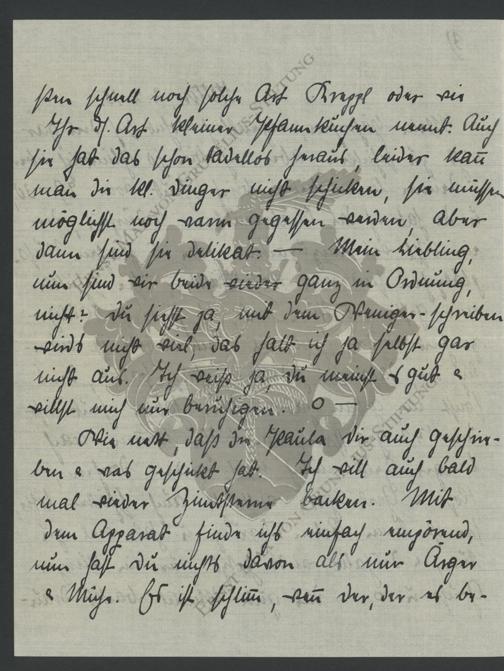 ßen schnell noch solche Art Kreppl oder wie
Ihr d. Art kleiner Pfannkuchen nennt. Auch
sie hat das schon tadellos heraus, leider kañ
man die kl. Dinger nicht schicken, sie müssen
möglichst noch warm gegessen werden, aber
dann sind sie delikat. — Mein Liebling,
nun sind wir beide wieder ganz in Ordnung,
nicht? Du siehst ja, mit dem Weniger-schreiben
wirds nicht viel, das halt ich ja selbst gar
nicht aus. Ich weiß ja, du meinst es gut &
willst mich nur beruhigen. O —
Wie nett, daß die Paula Dir auch geschrie-
ben & was geschickt hat. Ich will auch bald
mal wieder Zimtsterne backen. Mit
dem Apparat finde ichs einfach empörend,
nun hast Du nichts davon als nur Ärger
& Mühe. Es ist schlim̄, wen̄ der, der es be-